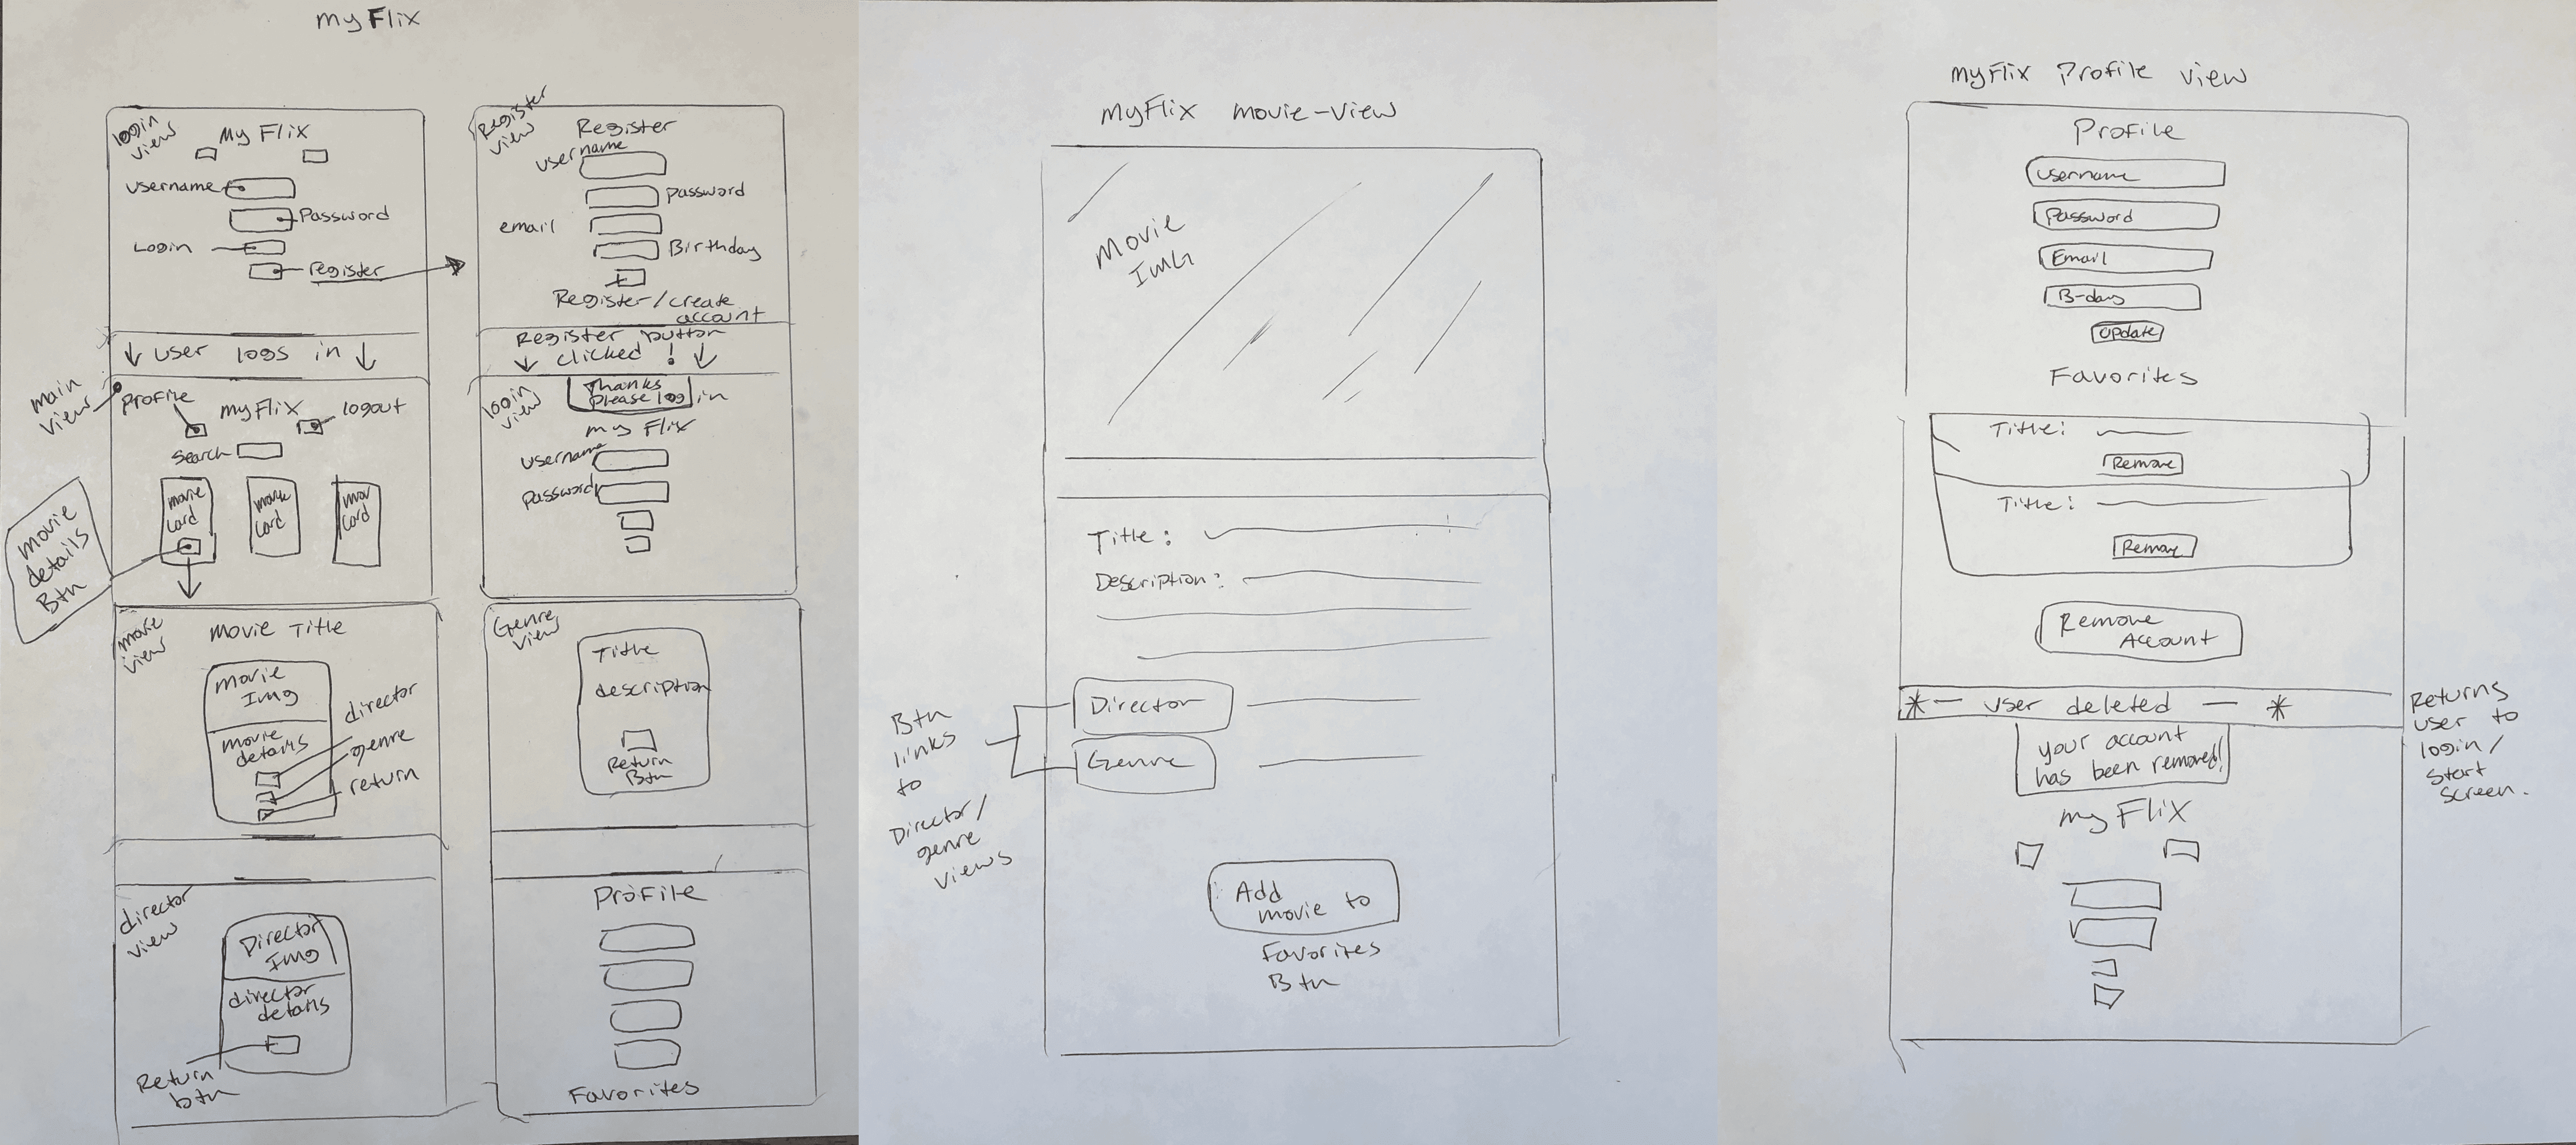 myFlix
login
view
My Flix
username
Password
Login
register
↓ user logs in ↓
main
view
Profile
myFlix
logout
Search
movie
card
movie
card
mov
card
movie
details
Btn
movie
view
Movie Title
movie
Img
movie
details
director
genre
return
director
view
Director
Img
director
details
Return
btn
Register
view
Register
username
Password
email
Birthday
Register/create
account
Register button
↓ clicked! ↓
login
view
Thanks
Please log in
my Flix
username
password
Genre
view
Title
description
Return
Btn
Profile
Favorites
MyFlix movie-view
Movie
IMG
Title:
Description:
Director
Genre
Btn
links
to
Director/
genre
views
Add
movie to
Favorites
Btn
MyFlix Profile view
Profile
username
Password
Email
B-day
update
Favorites
Title:
Remove
Title:
Remove
Remove
Account
*— user deleted — *
your account
has been removed!
Returns
user to
login/
start
screen.
my Flix